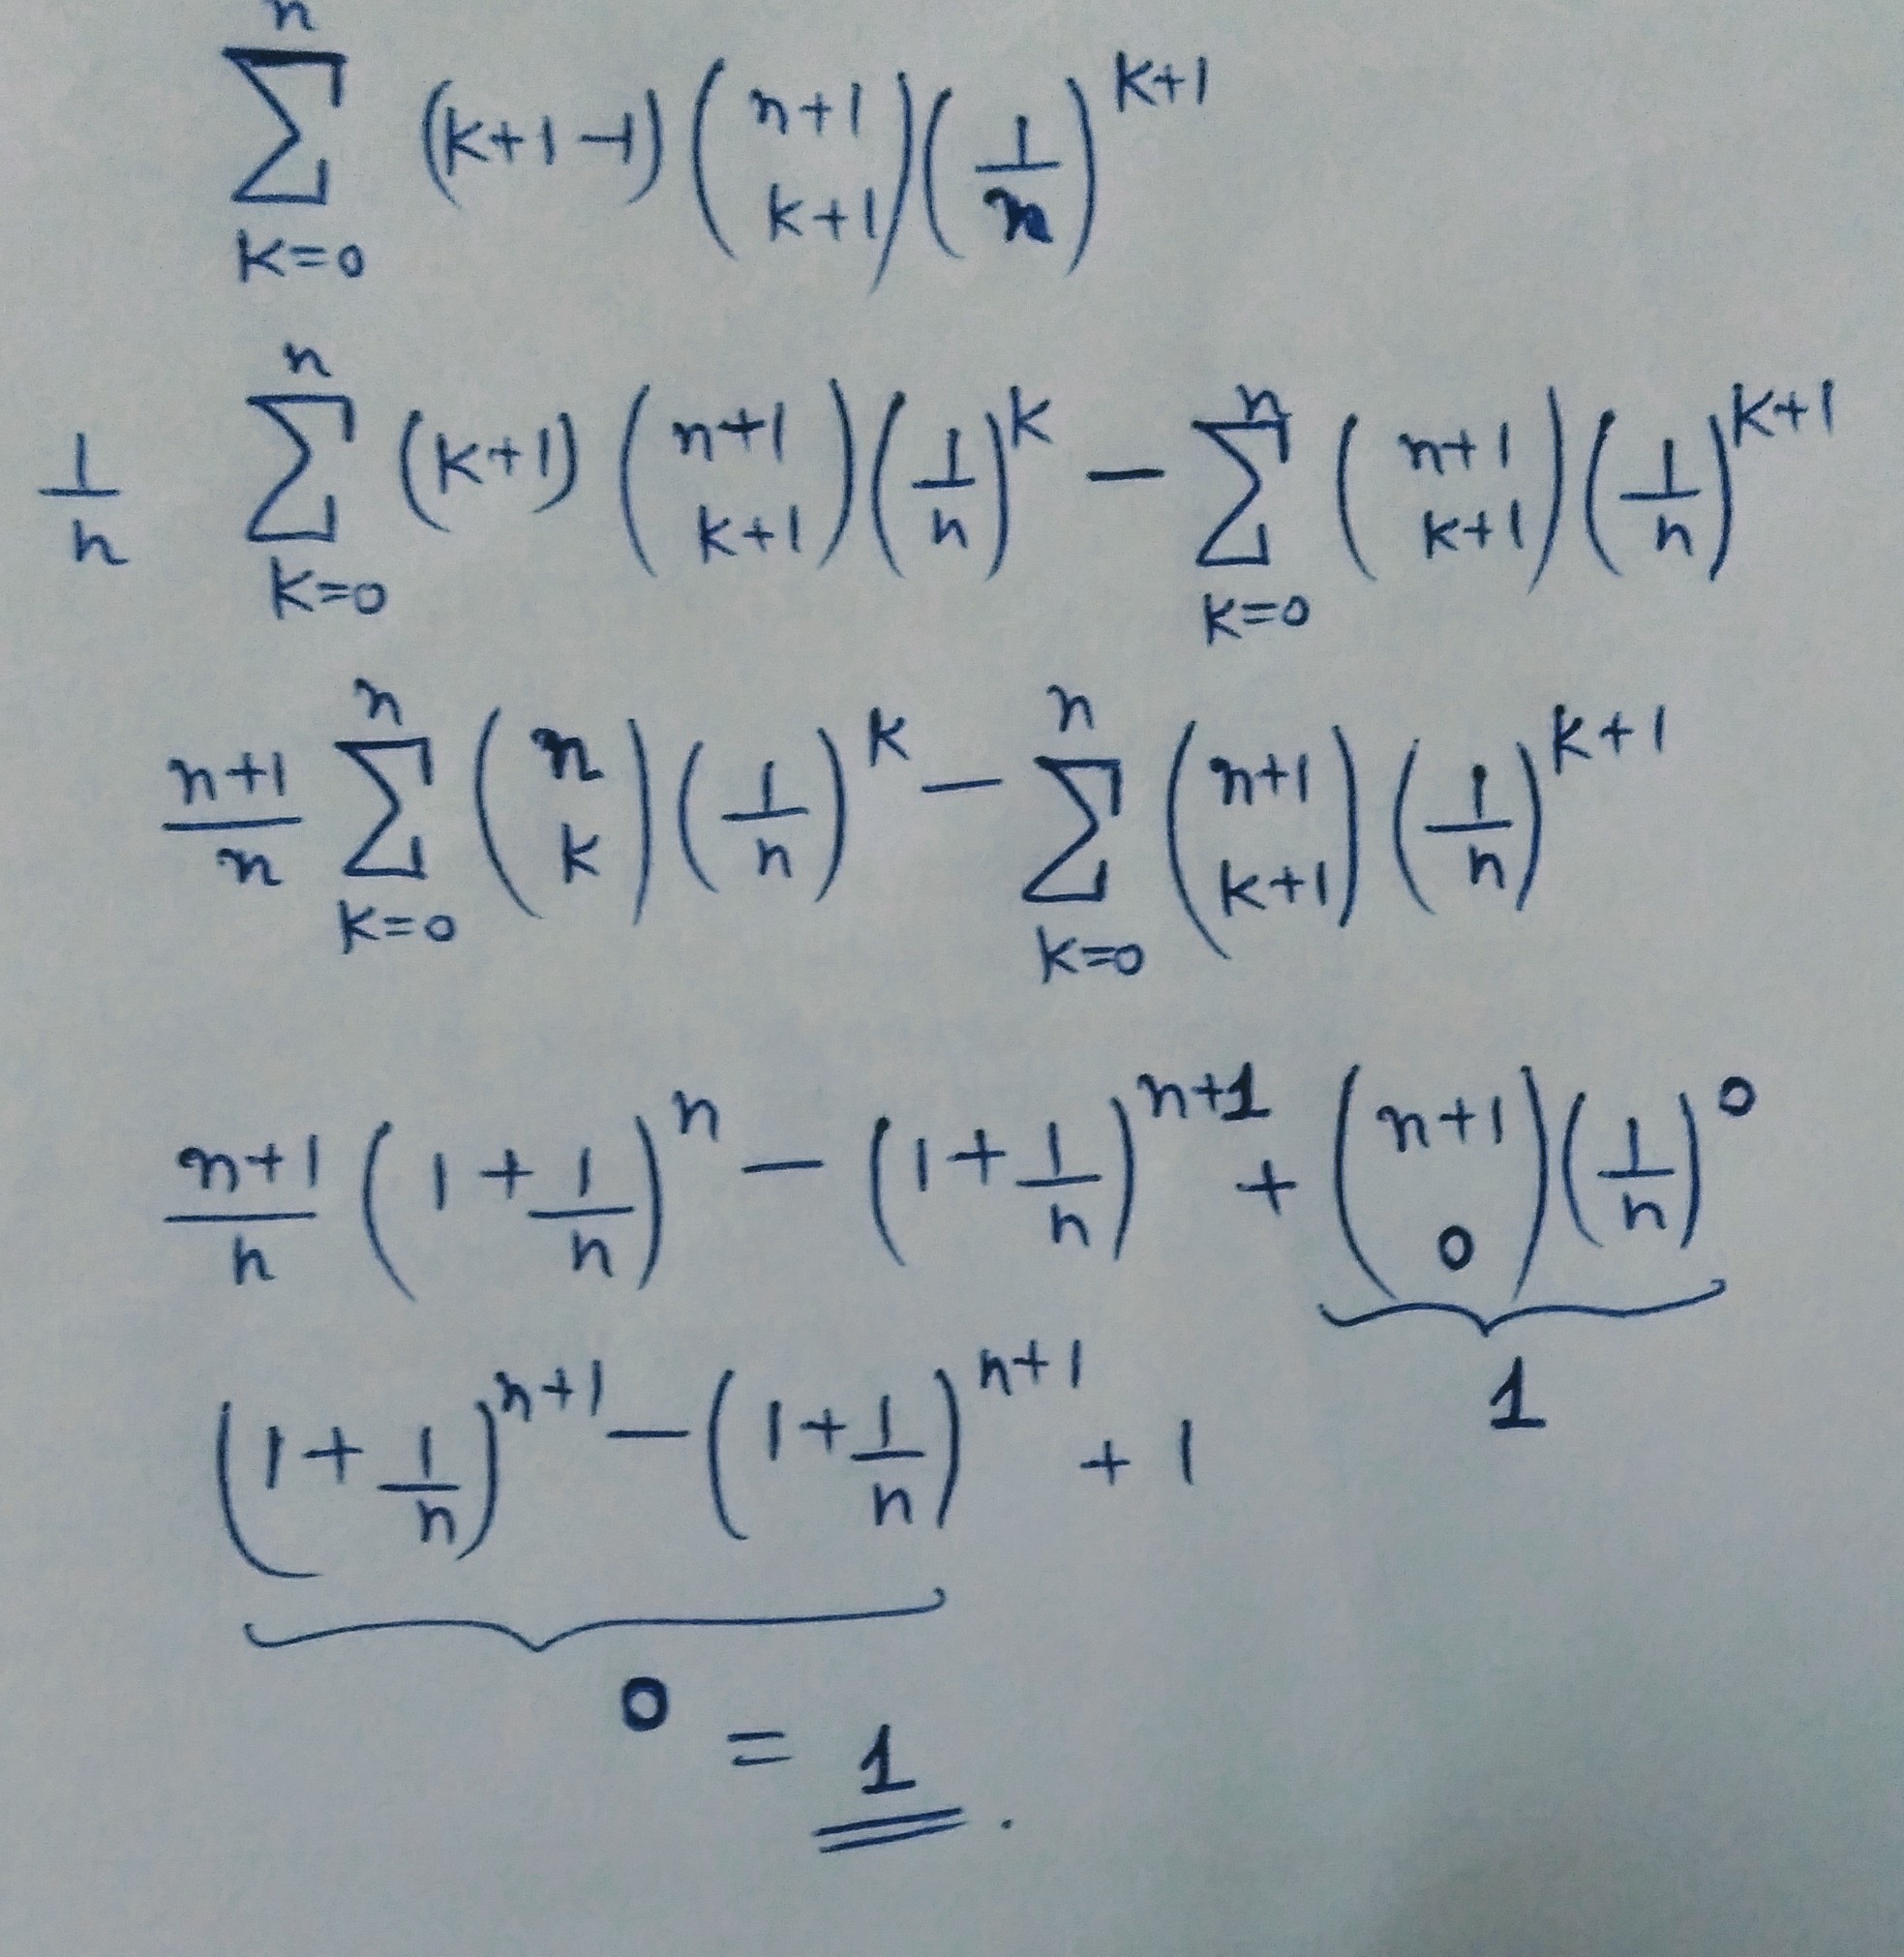 \sum_{k=0}^{n} (k+1-1) \binom{n+1}{k+1} \left(\frac{1}{n}\right)^{k+1}
\frac{1}{n} \sum_{k=0}^{n} (k+1) \binom{n+1}{k+1} \left(\frac{1}{n}\right)^{k} - \sum_{k=0}^{n} \binom{n+1}{k+1} \left(\frac{1}{n}\right)^{k+1}
\frac{n+1}{n} \sum_{k=0}^{n} \binom{n}{k} \left(\frac{1}{n}\right)^{k} - \sum_{k=0}^{n} \binom{n+1}{k+1} \left(\frac{1}{n}\right)^{k+1}
\frac{n+1}{n} \left(1+\frac{1}{n}\right)^{n} - \left(1+\frac{1}{n}\right)^{n+1} + \underbrace{\binom{n+1}{0} \left(\frac{1}{n}\right)^{0}}_{1}
\underbrace{\left(1+\frac{1}{n}\right)^{n+1} - \left(1+\frac{1}{n}\right)^{n+1}}_{0} + 1
= 1.